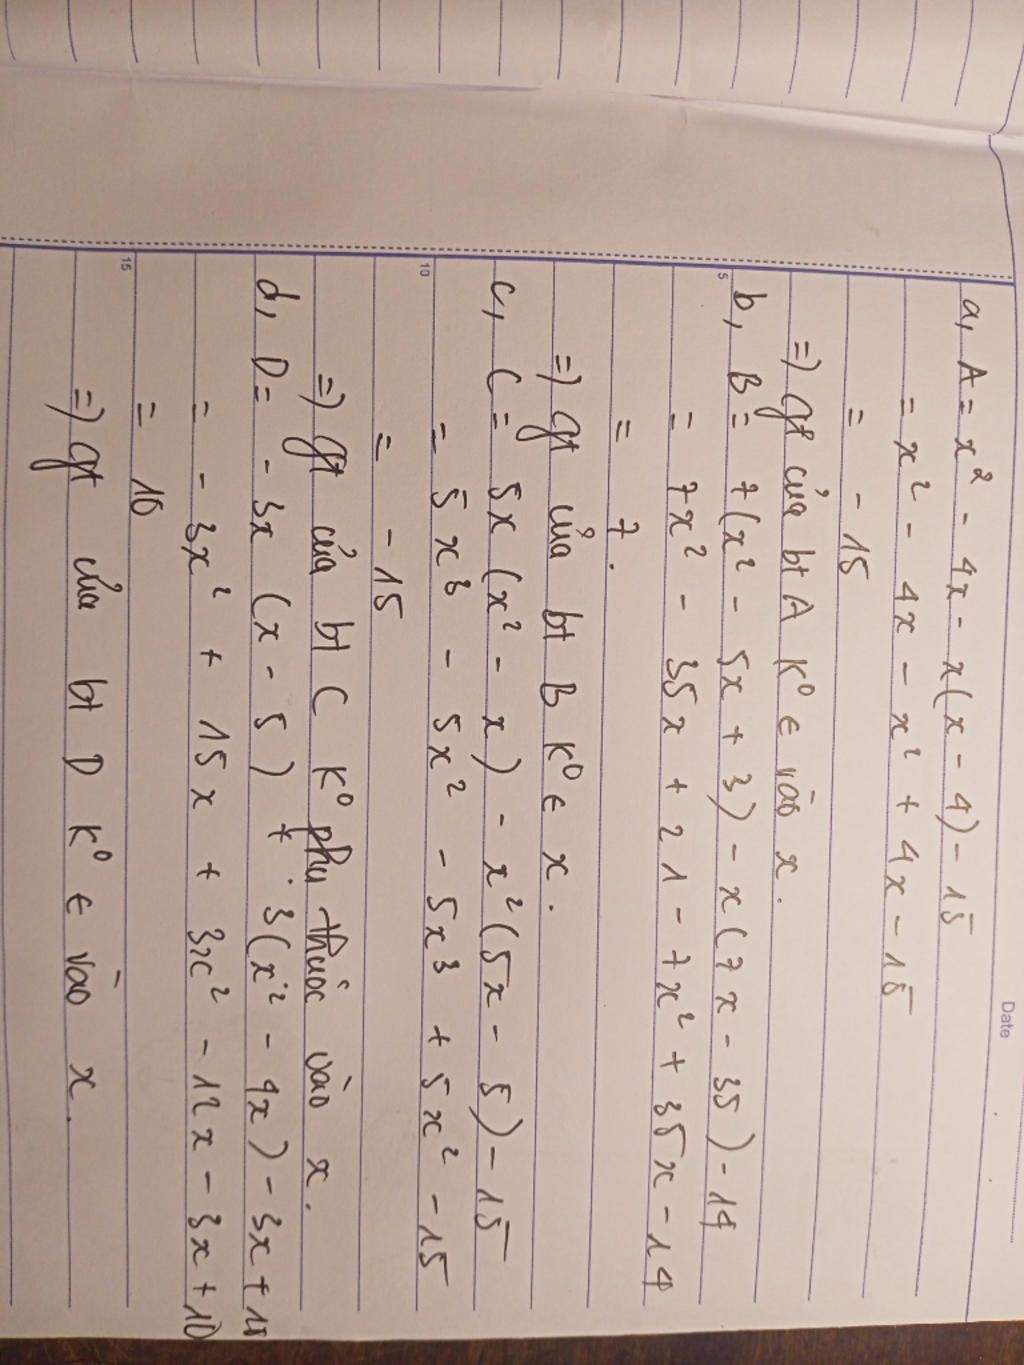 Date
a, A = x² - 4x - x(x - 4) - 15
= x² - 4x - x² + 4x - 15
= - 15
=) gt của bt A K⁰ ∈ vào x.
5
b, B = 7(x² - 5x + 3) - x(7x - 35) - 14
= 7x² - 35x + 21 - 7x² + 35x - 14
= 7.
=) gt của bt B K⁰ ∈ x.
c, C = 5x (x² - x) - x² (5x - 5) - 15
10
= 5x³ - 5x² - 5x³ + 5x² - 15
= - 15
=) gt của bt C K⁰ phụ thuộc vào x.
d, D = - 3x (x - 5) + 3(x² - 4x) - 3x + 10
= - 3x² + 15x + 3x² - 12x - 3x + 10
15
= 10
=) gt của bt D K⁰ ∈ vào x.